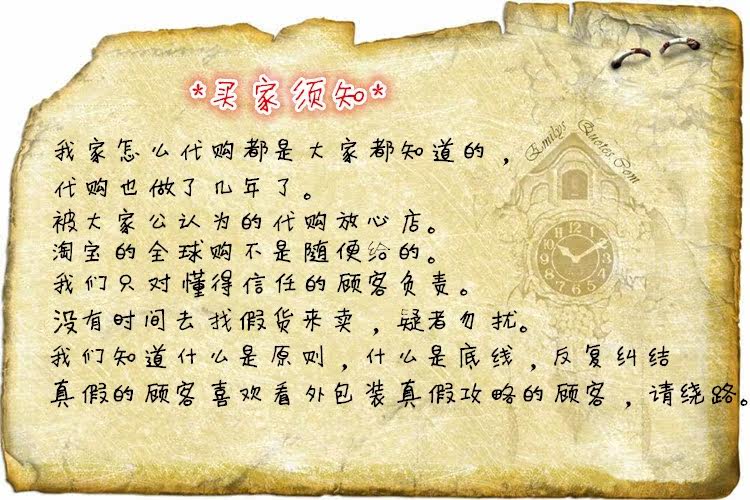 *买家须知*
我家怎么代购都是大家都知道的，
代购也做了几年了。
被大家公认为的代购放心店。
淘宝的全球购不是随便给的。
我们只对懂得信任的顾客负责。
没有时间去找假货来卖，疑者勿扰。
我们知道什么是原则，什么是底线，反复纠结
真假的顾客喜欢看外包装真假攻略的顾客，请绕路。
Emilys Quotes.Com